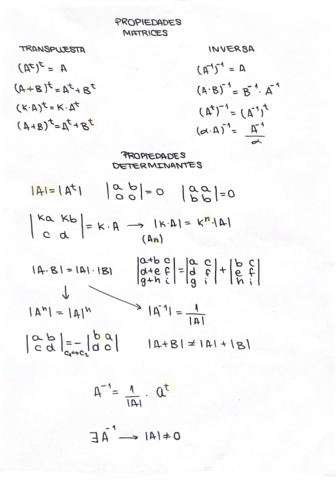 PROPIEDADES
MATRICES
TRANSPUESTA
(Aᵗ)ᵗ = A
(A+B)ᵗ = Aᵗ + Bᵗ
(K·A)ᵗ = K·Aᵗ
(A+B)ᵗ = Aᵗ + Bᵗ
INVERSA
(A⁻¹)⁻¹ = A
(A·B)⁻¹ = B⁻¹ · A⁻¹
(Aᵗ)⁻¹ = (A⁻¹)ᵗ
(α·A)⁻¹ = A⁻¹/α
PROPIEDADES
DETERMINANTES
|A| = |Aᵗ| |a b; 0 0| = 0 |a a; b b| = 0
|Ka Kb; c d| = K·A → |K·A| = Kⁿ·|A|
(An)
|A·B| = |A|·|B| |a+b c; d+e f; g+h i| = |a c; d f; g i| + |b c; e f; h i|
|Aⁿ| = |A|ⁿ |A⁻¹| = 1/|A|
|a b; c d| = C₁↔C₂ − |b a; d c| |A+B| ≠ |A| + |B|
A⁻¹ = 1/|A| · aᵗ
∃A⁻¹ → |A| ≠ 0